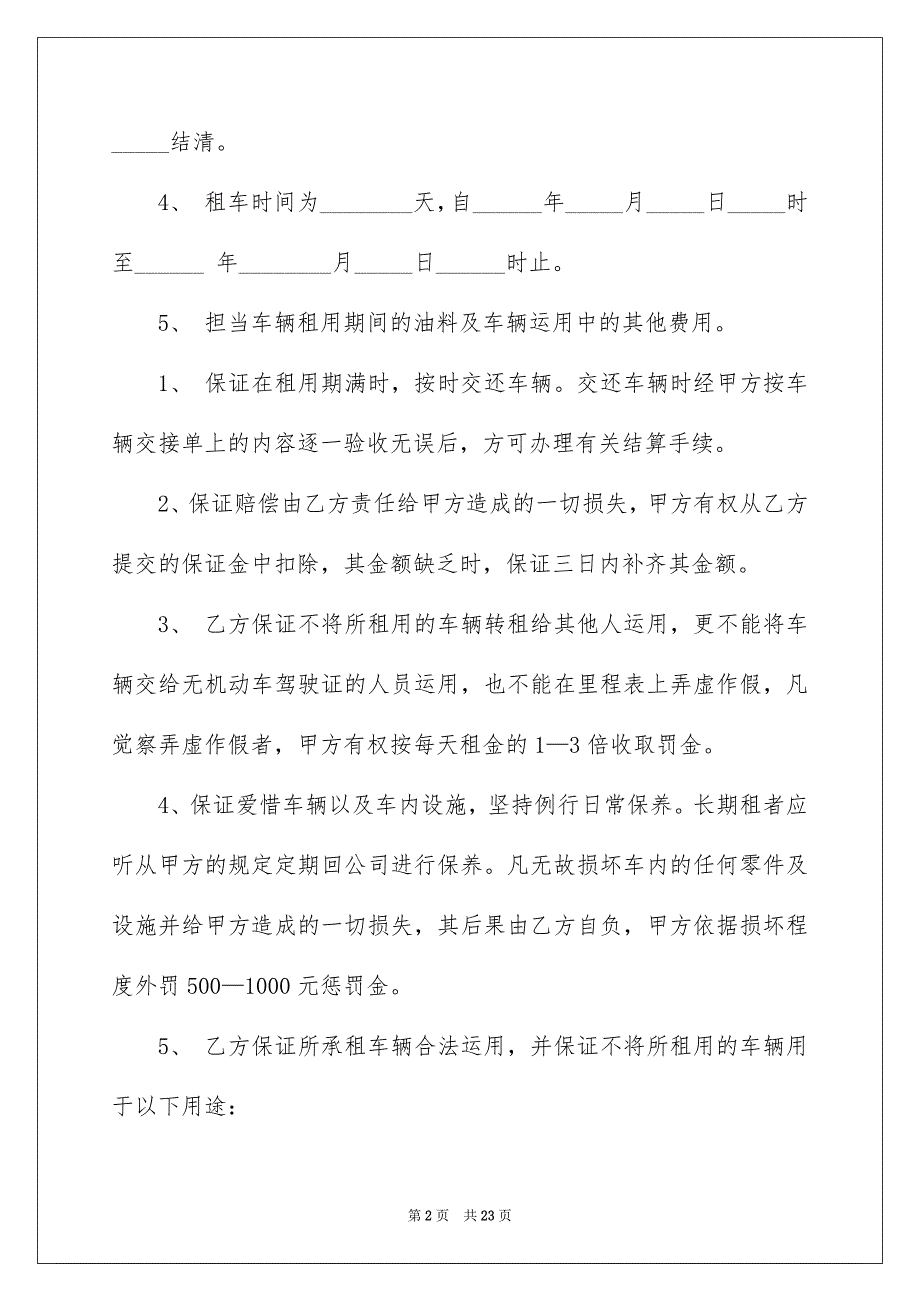 _____结清。
4、 租车时间为________天，自______年_____月_____日_____时
至______ 年________月_____日______时止。
5、 担当车辆租用期间的油料及车辆运用中的其他费用。
1、 保证在租用期满时，按时交还车辆。交还车辆时经甲方按车
辆交接单上的内容逐一验收无误后，方可办理有关结算手续。
2、保证赔偿由乙方责任给甲方造成的一切损失，甲方有权从乙方
提交的保证金中扣除，其金额缺乏时，保证三日内补齐其金额。
3、 乙方保证不将所租用的车辆转租给其他人运用，更不能将车
辆交给无机动车驾驶证的人员运用，也不能在里程表上弄虚作假，凡
觉察弄虚作假者，甲方有权按每天租金的 1—3 倍收取罚金。
4、保证爱惜车辆以及车内设施，坚持例行日常保养。长期租者应
听从甲方的规定定期回公司进行保养。凡无故损坏车内的任何零件及
设施并给甲方造成的一切损失，其后果由乙方自负，甲方依据损坏程
度外罚 500—1000 元惩罚金。
5、 乙方保证所承租车辆合法运用，并保证不将所租用的车辆用
于以下用途：
第 2 页 共 23 页